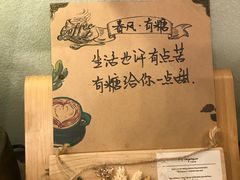 Coffee
春风·有糖
生活也许有点苦
有糖给你一点甜.